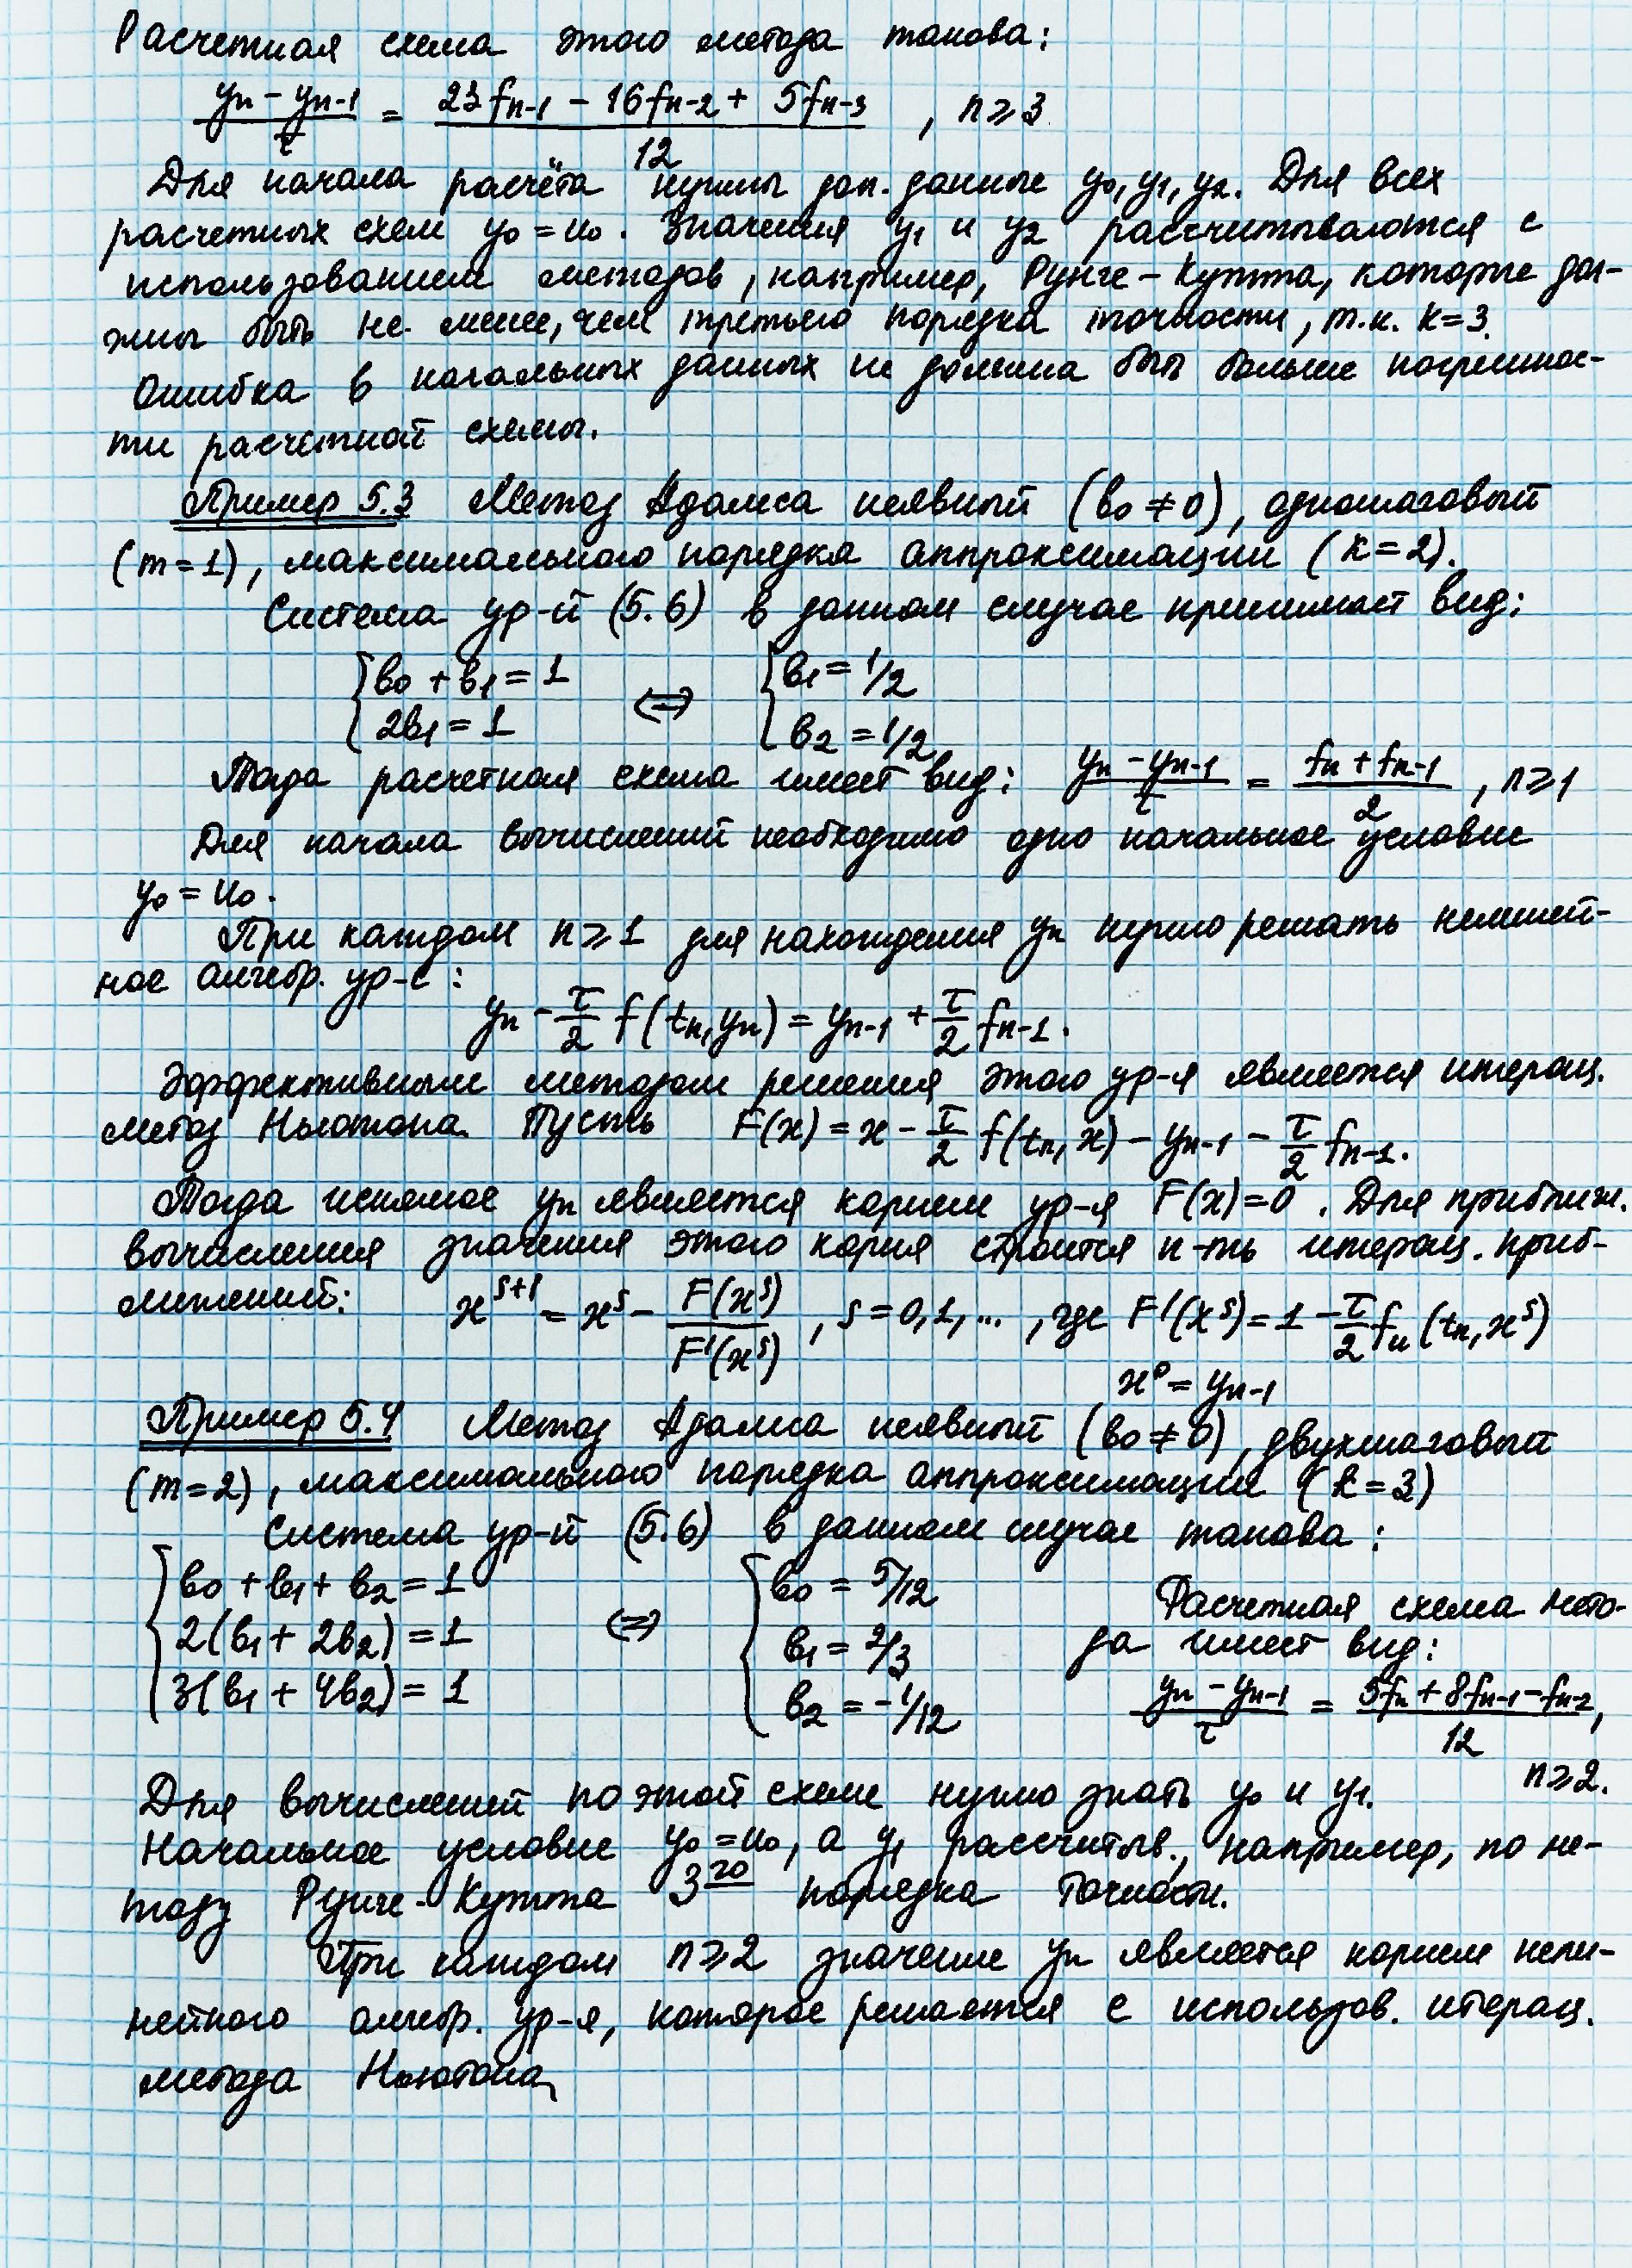 Расчетная схема этого метода такова:
(yn - yn-1)/τ = (23fn-1 - 16fn-2 + 5fn-3)/12 , n ≥ 3
Для начала расчёта нужны доп. данные y0, y1, y2. Для всех
расчетных схем y0 = u0. Значения y1 и y2 рассчитываются с
использованием методов, например, Рунге-Кутта, которые дол-
жны быть не менее, чем третьего порядка точности, т.к. k=3.
Ошибка в начальных данных не должна быть больше погрешнос-
ти расчетной схемы.
Пример 5.3 Метод Адамса неявный (b0 ≠ 0), одношаговый
(m=1), максимального порядка аппроксимации (k=2).
Система ур-й (5.6) в данном случае принимает вид:
{ b0 + b1 = 1 ⇔ { b1 = 1/2
{ 2b1 = 1 { b2 = 1/2
Тогда расчетная схема имеет вид: (yn - yn-1)/τ = (fn + fn-1)/2 , n ≥ 1
Для начала вычислений необходимо одно начальное условие
y0 = u0.
При каждом n ≥ 1 для нахождения yn нужно решать нелиней-
ное алгебр. ур-е:
yn - τ/2 f(tn, yn) = yn-1 + τ/2 fn-1.
Эффективным методом решения этого ур-я является итерац.
метод Ньютона. Пусть F(x) = x - τ/2 f(tn, x) - yn-1 - τ/2 fn-1.
Тогда искомое yn является корнем ур-я F(x)=0. Для приближ.
вычисления значения этого корня строится п-ть итерац. приб-
лижений: x^(s+1) = x^s - F(x^s)/F'(x^s) , s = 0,1,... , где F'(x^s) = 1 - τ/2 fu (tn, x^s)
x^0 = yn-1
Пример 5.4 Метод Адамса неявный (b0 ≠ 0), двухшаговый
(m=2), максимального порядка аппроксимации (k=3)
Система ур-й (5.6) в данном случае такова:
{ b0 + b1 + b2 = 1 ⇔ { b0 = 5/12 Расчетная схема мето-
{ 2(b1 + 2b2) = 1 { b1 = 2/3 да имеет вид:
{ 3(b1 + 4b2) = 1 { b2 = -1/12 (yn - yn-1)/τ = (5fn + 8fn-1 - fn-2)/12,
n ≥ 2.
Для вычислений по этой схеме нужно знать y0 и y1.
Начальное условие y0 = u0, а y1 рассчитыв., например, по ме-
тоду Рунге-Кутта 3го порядка точности.
При каждом n ≥ 2 значение yn является корнем нели-
нейного алгебр. ур-я, которое решается с использов. итерац.
метода Ньютона.